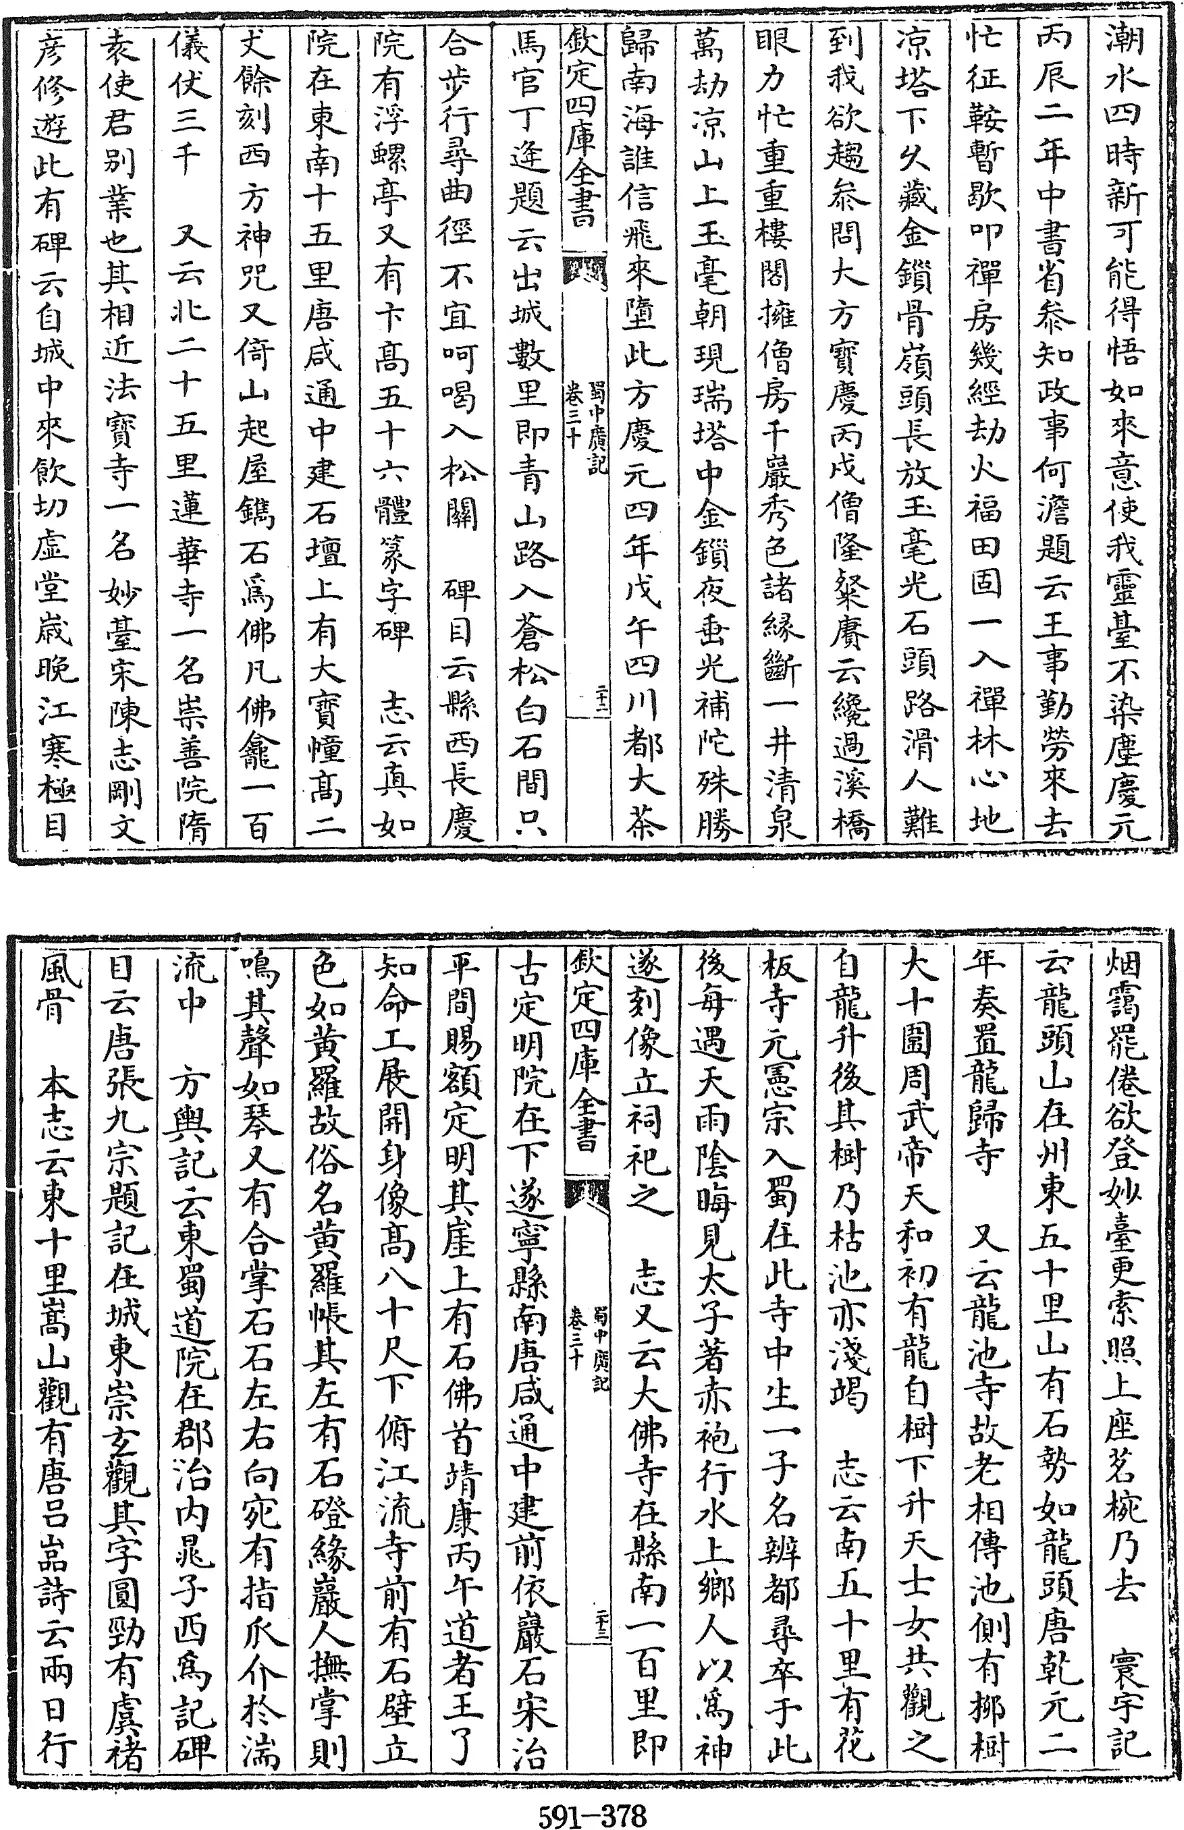 潮水四時新可能得悟如來意使我靈䑓不染塵慶元
丙辰二年中書省叅知政事何澹題云王事勤勞來去
忙征鞍暫歇叩禪房幾經劫火福田固一入禪林心地
凉塔下久藏金鎖骨嶺頭長放玉毫光石頭路滑人難
到我欲趨叅問大方寶慶丙戌僧隆粲賡云纔過溪橋
眼力忙重重樓閣擁僧房千巖秀色諸縁斷一井清泉
萬劫凉山上玉毫朝現瑞塔中金鎖夜垂光補陀殊勝
歸南海誰信飛來墮此方慶元四年戊午四川都大茶
欽定四庫全書
蜀中廣記
卷三十
二十二
馬官丁逄題云出城數里即青山路入蒼松白石間只
合步行尋曲徑不宜呵喝入松關 碑目云縣西長慶
院有浮螺亭又有卞髙五十六體篆字碑 志云真如
院在東南十五里唐咸通中建石壇上有大寶幢髙二
丈餘刻西方神咒又倚山起屋鐫石爲佛凡佛龕一百
儀仗三千 又云北二十五里蓮華寺一名崇善院隋
袁使君别業也其相近法寶寺一名妙䑓宋陳志剛文
彦修遊此有碑云自城中來飲切虛堂嵗晚江寒極目
烟靄罷倦欲登妙臺更索照上座茗椀乃去 寰宇記
云龍頭山在州東五十里山有石勢如龍頭唐乾元二
年奏置龍歸寺 又云龍池寺故老相傳池側有栁樹
大十圍周武帝天和初有龍自樹下升天士女共觀之
自龍升後其樹乃枯池亦淺竭 志云南五十里有花
板寺元憲宗入蜀在此寺中生一子名辨都尋卒于此
後每遇天雨陰晦見太子著赤袍行水上鄉人以爲神
遂刻像立祠祀之 志又云大佛寺在縣南一百里即
欽定四庫全書
蜀中廣記
卷三十
二十三
古定明院在下遂寧縣南唐咸通中建前依巖石宋治
平間賜額定明其崖上有石佛首靖康丙午道者王了
知命工展開身像髙八十尺下俯江流寺前有石壁立
色如黄羅故俗名黄羅帳其左有石磴緣巖人撫掌則
鳴其聲如琴又有合掌石石左右向宛有指爪介於湍
流中 方輿記云東蜀道院在郡治内晁子西爲記碑
目云唐張九宗題記在城東崇玄觀其字圓勁有虞褚
風骨 本志云東十里嵩山觀有唐吕嵒詩云兩日行
591-378